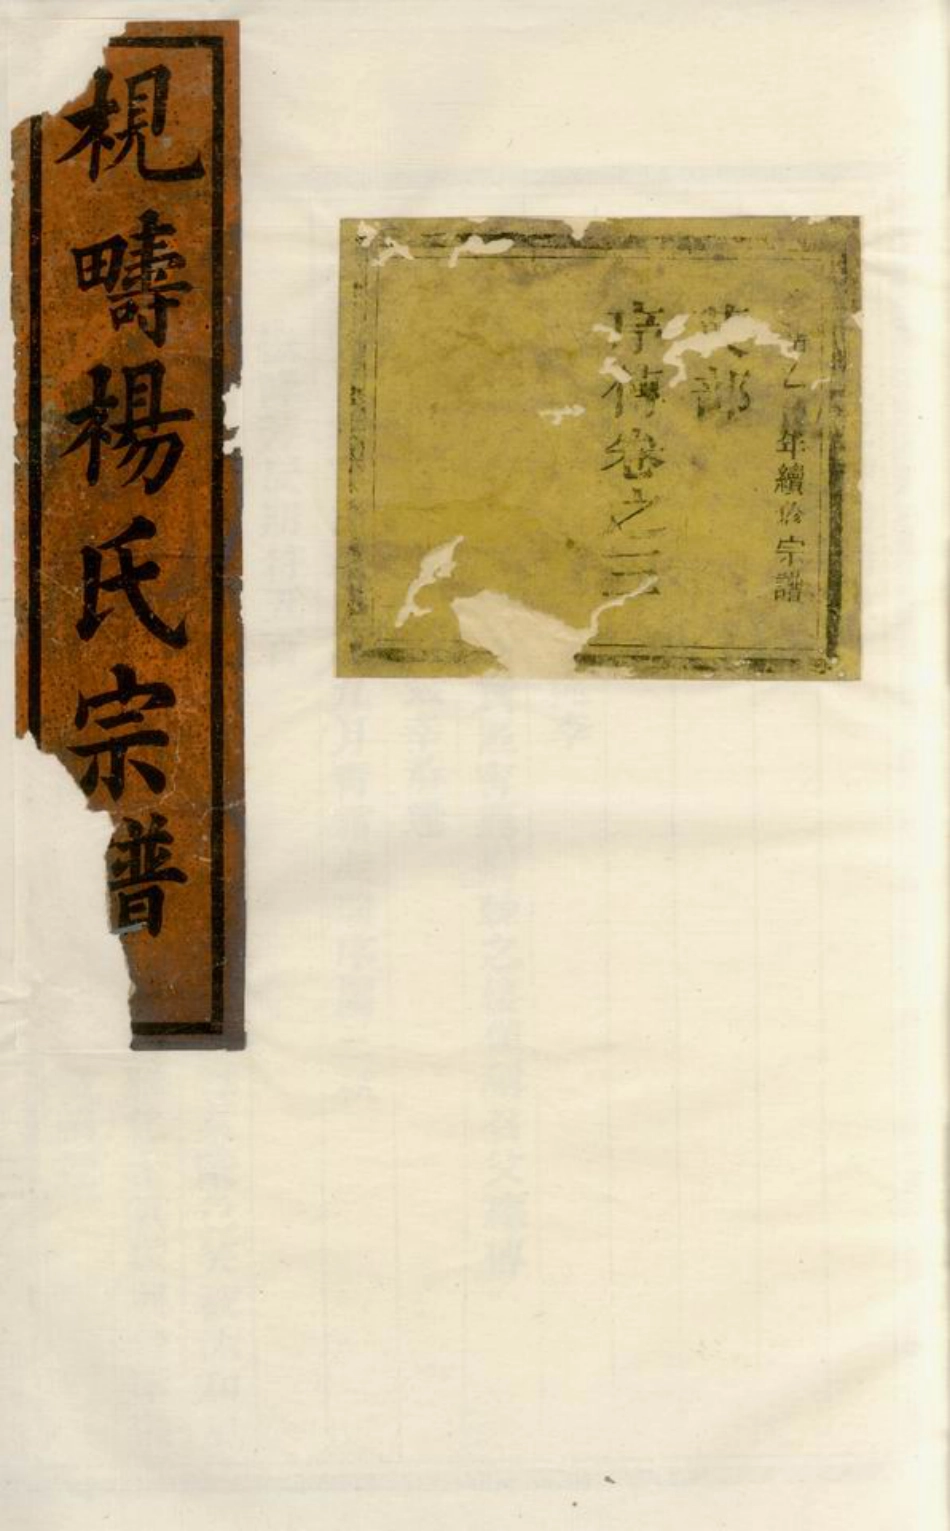 年續修宗譜
部
序傳卷之三
梘疇楊氏宗譜